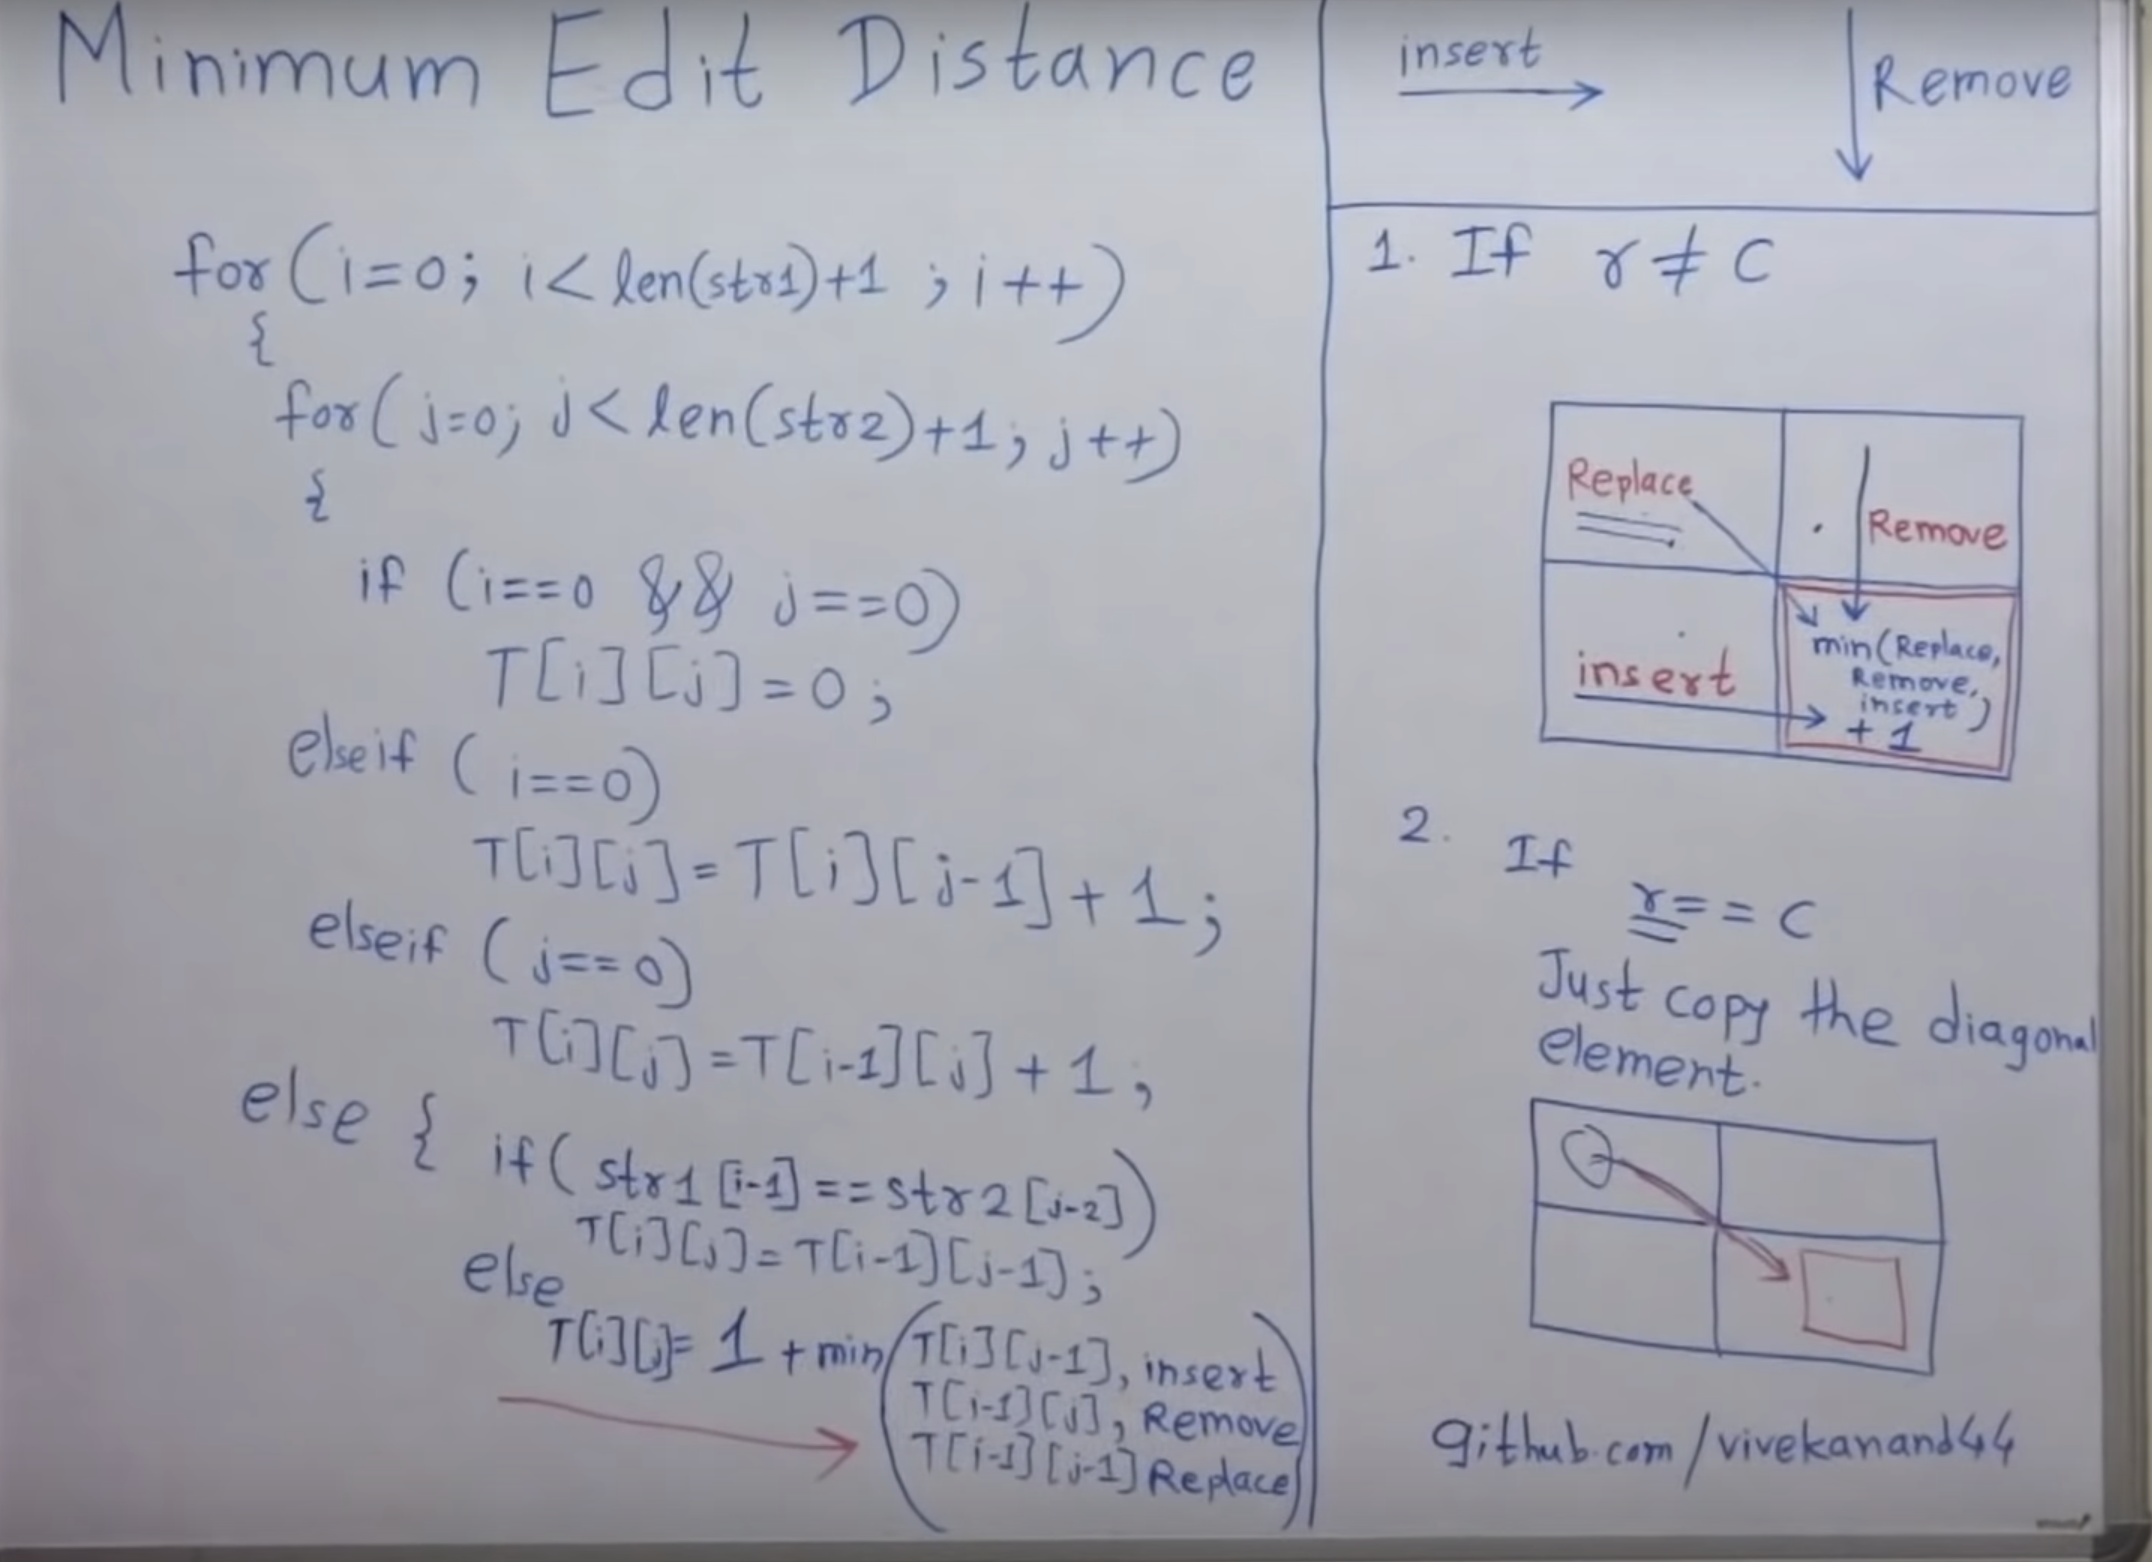 Minimum Edit Distance
for(i=0; i<len(str1)+1 ; i++)
{
for(j=0; j<len(str2)+1; j++)
{
if (i==0 && j==0)
T[i][j]=0;
elseif (i==0)
T[i][j]=T[i][j-1]+1;
elseif (j==0)
T[i][j]=T[i-1][j]+1,
else { if(str1[i-1]==str2[j-2])
T[i][j]=T[i-1][j-1];
else
T[i][j]= 1 + min(T[i][j-1], insert
T[i-1][j], Remove
T[i-1][j-1] Replace)
insert
Remove
1. If r ≠ c
Replace
Remove
insert
min(Replace,
Remove,
insert)
+ 1
2. If
r == c
Just copy the diagonal
element.
github.com/vivekanand44